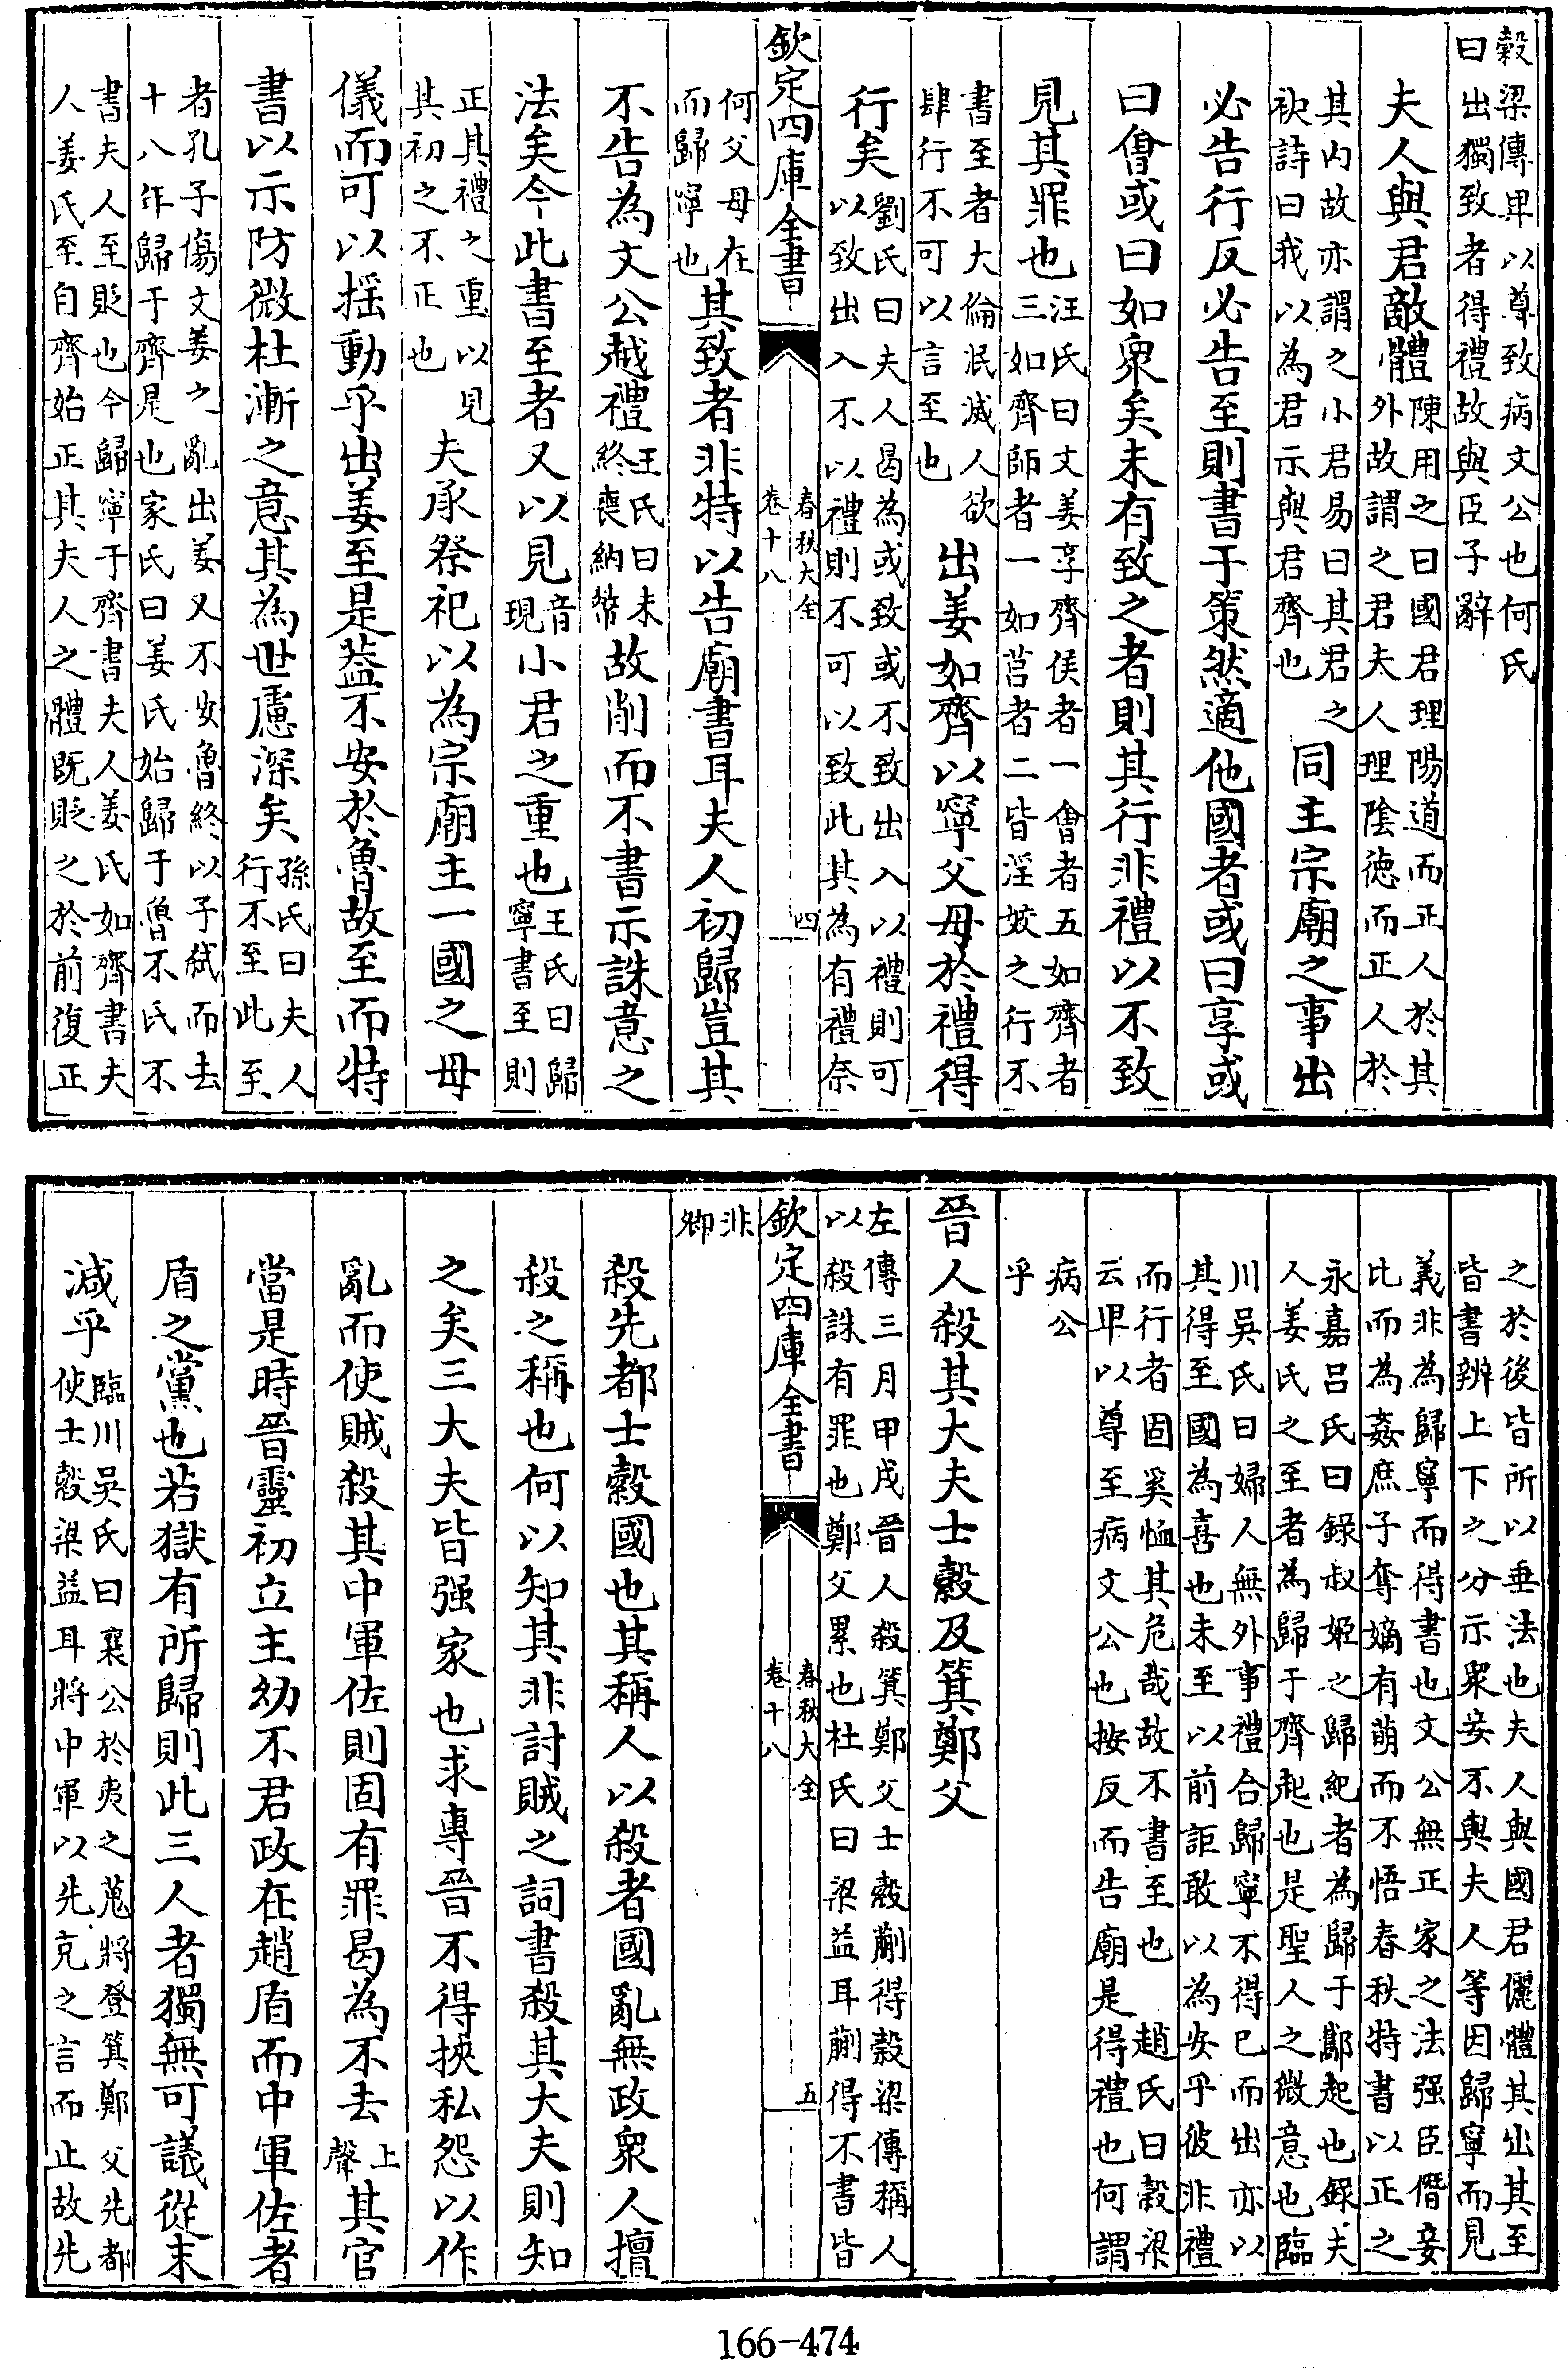 穀梁傳卑以尊致病文公也何氏
曰出獨致者得禮故與臣子辭
夫人與君敵體陳用之曰國君理陽道而正人於其
外故謂之君夫人理陰徳而正人於
其内故亦謂之小君易曰其君之
袂詩曰我以為君示與君齊也同主宗廟之事出
必告行反必告至則書于策然適他國者或曰享或
曰㑹或曰如衆矣未有致之者則其行非禮以不致
見其罪也汪氏曰文姜享齊侯者一㑹者五如齊者
三如齊師者一如莒者二皆淫姣之行不
書至者大倫泯滅人欲
肆行不可以言至也出姜如齊以寧父母於禮得
行矣劉氏曰夫人曷為或致或不致出入以禮則可
以致出入不以禮則不可以致此其為有禮奈
欽定四庫全書
春秋大全
卷十八
四
何父母在
而歸寧也其致者非特以告廟書耳夫人初歸豈其
不告為文公越禮王氏曰未
終喪納幣故削而不書示誅意之
法矣今此書至者又以見音
現小君之重也王氏曰歸
寧書至則
正其禮之重以見
其初之不正也夫承祭祀以為宗廟主一國之母
儀而可以揺動乎出姜至是葢不安於魯故至而特
書以示防微杜漸之意其為世慮深矣孫氏曰夫人
行不至此至
者孔子傷文姜之亂出姜又不安魯終以子弑而去
十八年歸于齊是也家氏曰姜氏始歸于魯不氏不
書夫人至貶也今歸寧于齊書夫人姜氏如齊書夫
人姜氏至自齊始正其夫人之體既貶之於前復正
之於後皆所以垂法也夫人與國君儷體其出其至
皆書辨上下之分示衆妾不與夫人等因歸寧而見
義非為歸寧而得書也文公無正家之法强臣僭妾
比而為姦庶子奪嫡有萌而不悟春秋特書以正之
永嘉呂氏曰録叔姬之歸紀者為歸于酅起也録夫
人姜氏之至者為歸于齊起也是聖人之微意也臨
川吳氏曰婦人無外事禮合歸寧不得已而出亦以
其得至國為喜也未至以前詎敢以為安乎彼非禮
而行者固奚恤其危哉故不書至也趙氏曰穀梁
云卑以尊至病文公也按反而告廟是得禮也何謂
病公
乎
晉人殺其大夫士縠及箕鄭父
左傳三月甲戌晉人殺箕鄭父士縠蒯得穀梁傳稱人
以殺誅有罪也鄭父累也杜氏曰梁益耳蒯得不書皆
欽定四庫全書
春秋大全
卷十八
五
非
卿
殺先都士縠國也其稱人以殺者國亂無政衆人擅
殺之稱也何以知其非討賊之詞書殺其大夫則知
之矣三大夫皆强家也求專晉不得挾私怨以作
亂而使賊殺其中軍佐則固有罪曷為不去上
聲其官
當是時晉靈初立主幼不君政在趙盾而中軍佐者
盾之黨也若獄有所歸則此三人者獨無可議從末
減乎臨川吳氏曰襄公於夷之蒐將登箕鄭父先都
使士縠梁益耳將中軍以先克之言而止故先
166-474